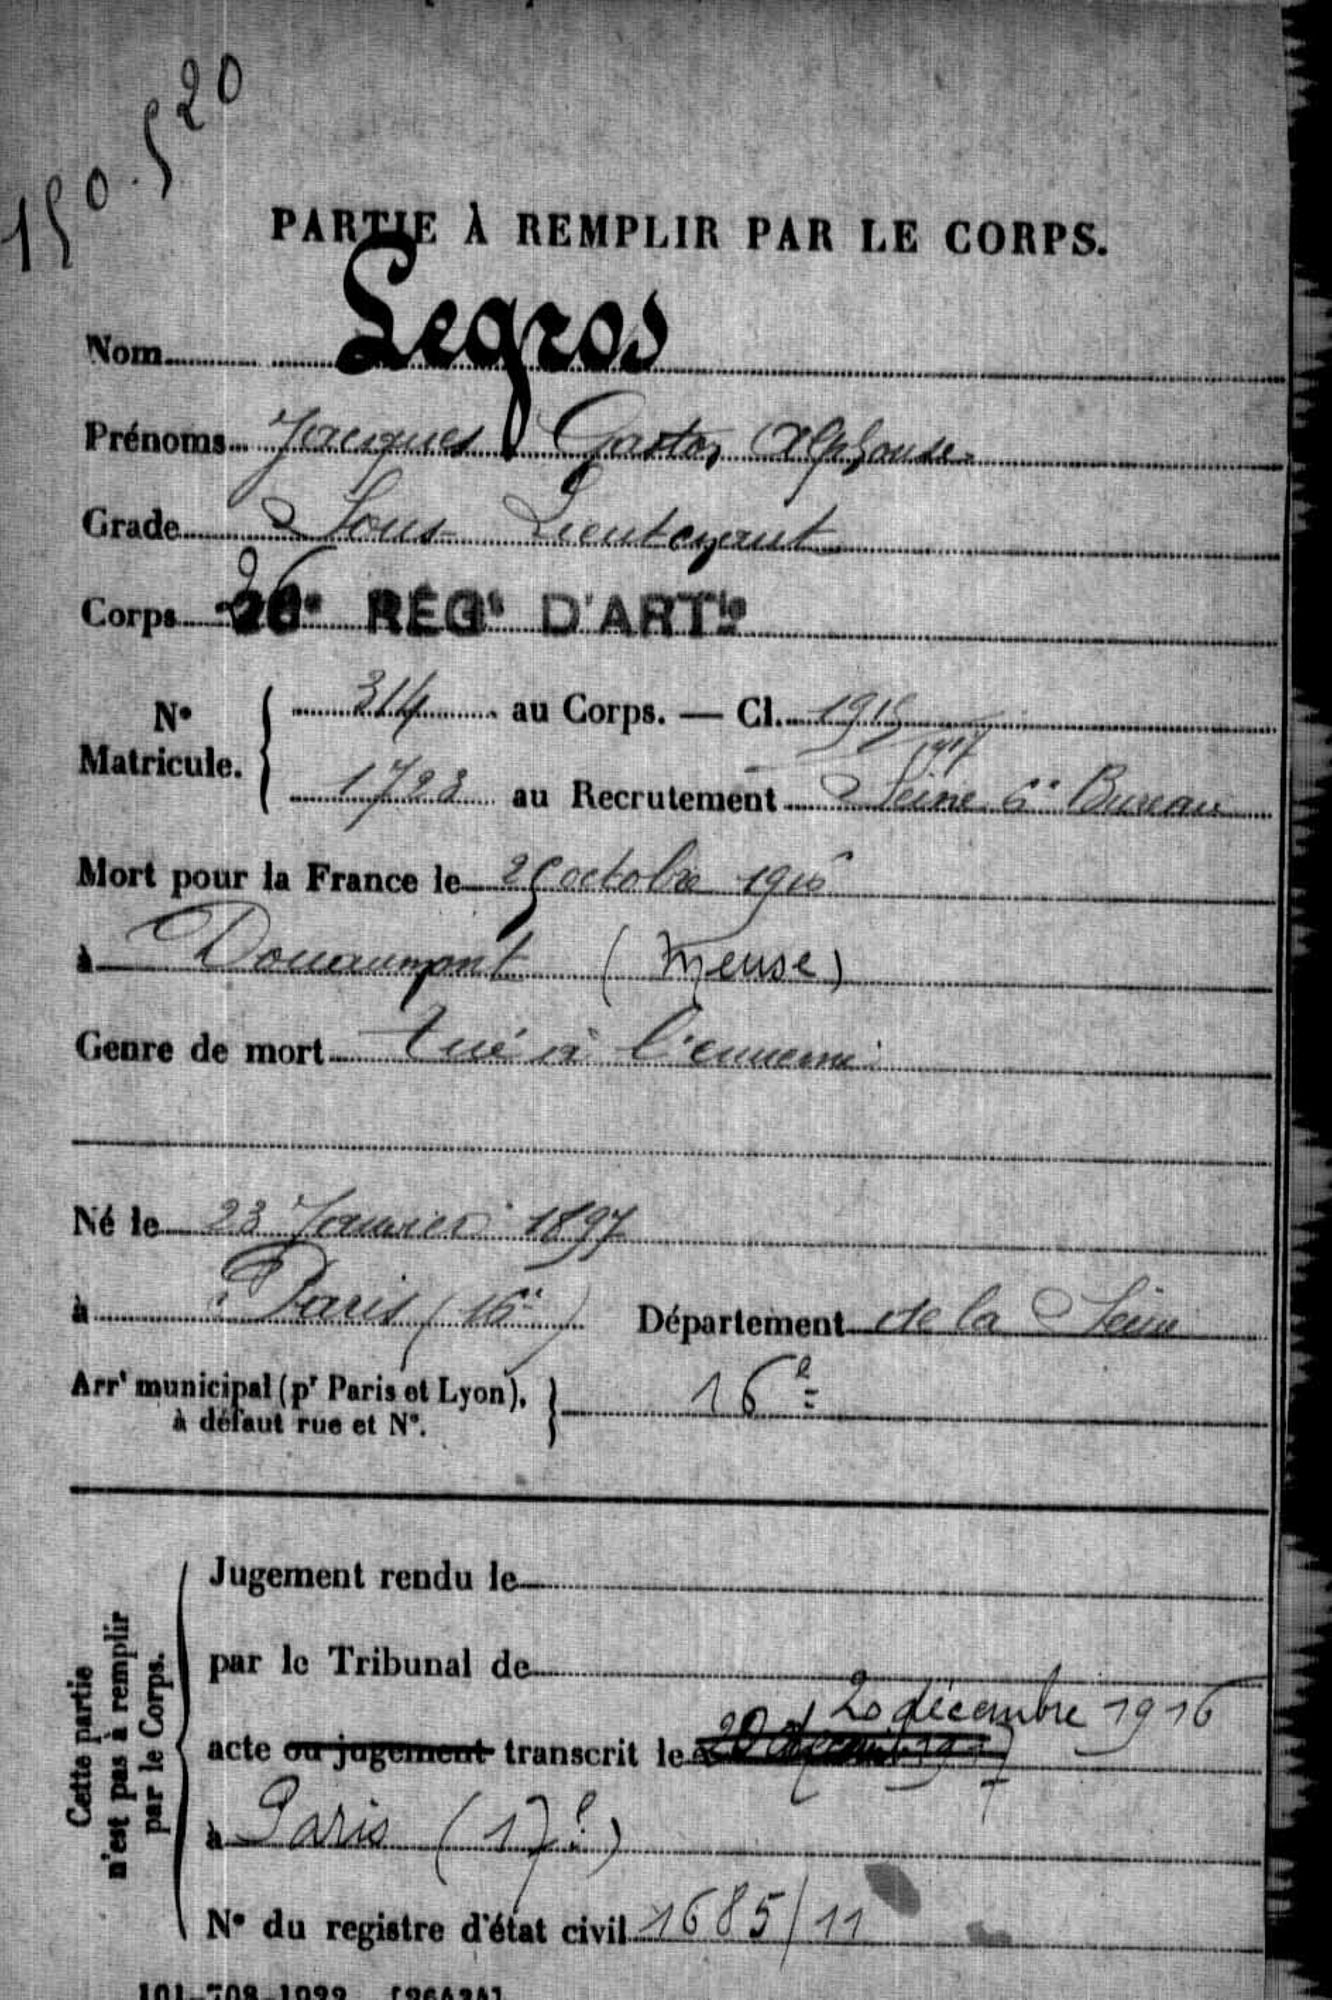 150.520
PARTIE À REMPLIR PAR LE CORPS.
Nom Legros
Prénoms Jacques Gaston Alphonse
Grade Sous Lieutenant
Corps 26e REGt D'ARTie
N° Matricule. 314 au Corps. — Cl. 1915
1917
1723 au Recrutement Seine 6e Bureau
Mort pour la France le 25 octobre 1916
à Douaumont (Meuse)
Genre de mort tué à l'ennemi
Né le 23 Janvier 1897
à Paris (16e) Département de la Seine
Arrt municipal (pr Paris et Lyon), 16e
à défaut rue et N°.
Cette partie n'est pas à remplir par le Corps.
Jugement rendu le
par le Tribunal de
20 décembre 1916
acte ou jugement transcrit le
à Paris (17e)
N° du registre d'état civil 1685/11
101-708-1922. [26434]